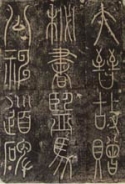 大晉故贈
秘書監馬
公神道碑